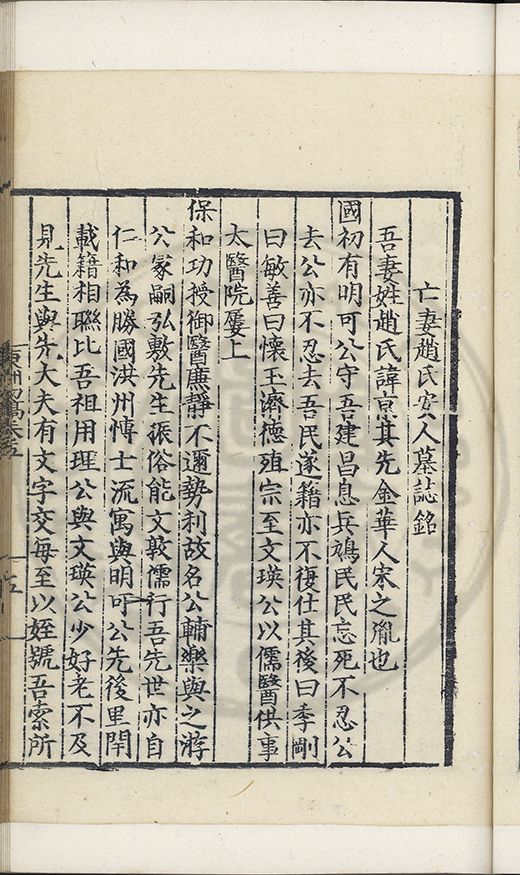 亡妻趙氏安人墓誌銘
吾妻姓趙氏諱京其先金華人宋之胤也
國初有明可公守吾建昌息兵鳩民民忘死不忍公
去公亦不忍去吾民遂籍亦不復仕其後曰季剛
曰敏善曰懷玉濟德殖宗至文瑛公以儒醫供事
太醫院屢上
保和功授御醫廉靜不邇勢利故名公輔樂與之游
公冢嗣弘敷先生振俗能文敦儒行吾先世亦自
仁和為勝國洪州博士流寓與明可公先後里閈
載籍相聯比吾祖用理公與文瑛公少好老不及
見先生與先大夫有文字交每至以姪號吾索所